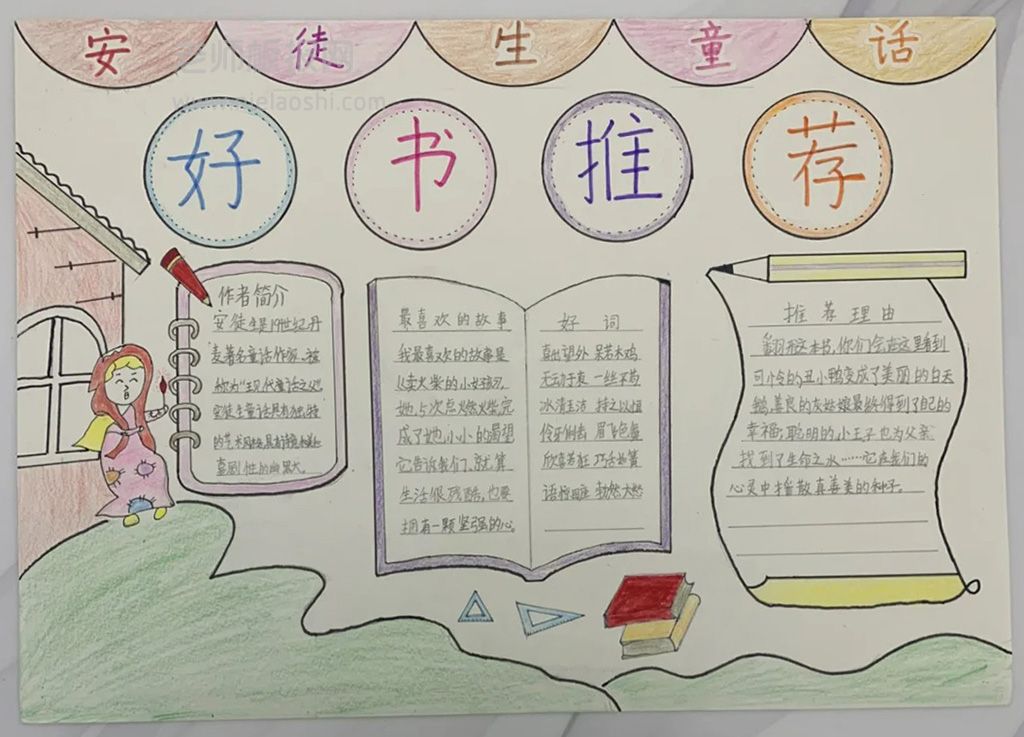 安徒生童话
好书推荐
作者简介
安徒生是19世纪丹
麦著名童话作家,被
称为“现代童话之父”
安徒生童话具有独特
的艺术风格:具有诗意和
喜剧性的幽默。
最喜欢的故事
我最喜欢的故事是
《卖火柴的小女孩》,
她5次点燃火柴,完
成了她小小的渴望
它告诉我们,就算
生活很残酷,也要
拥有一颗坚强的心。
好词
喜出望外 呆若木鸡
无动于衷 一丝不苟
冰清玉洁 持之以恒
伶牙俐齿 眉飞色舞
欣喜若狂 巧舌如簧
勃然大怒
推荐理由
翻开这本书,你们会在这里看到
可怜的丑小鸭变成了美丽的白天
鹅,善良的灰姑娘最终得到了自己的
幸福;聪明的小王子也为父亲
找到了生命之水……它在我们的
心灵中播散真善美的种子。